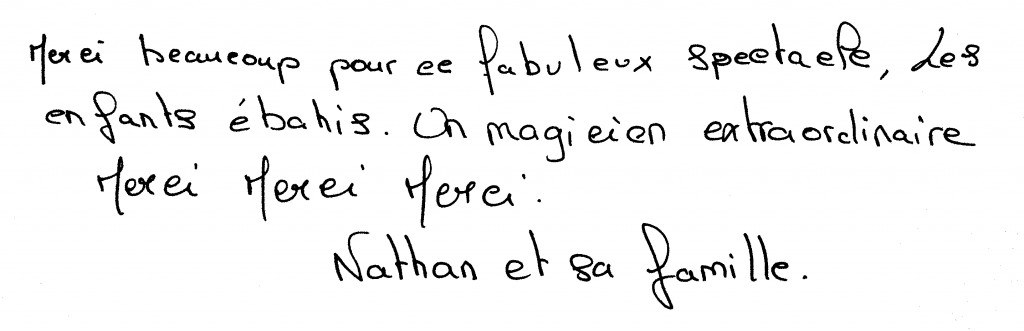 Merci beaucoup pour ce fabuleux spectacle, Les
enfants ébahis. Un magicien extraordinaire
Merci Merci Merci.
Nathan et sa famille.